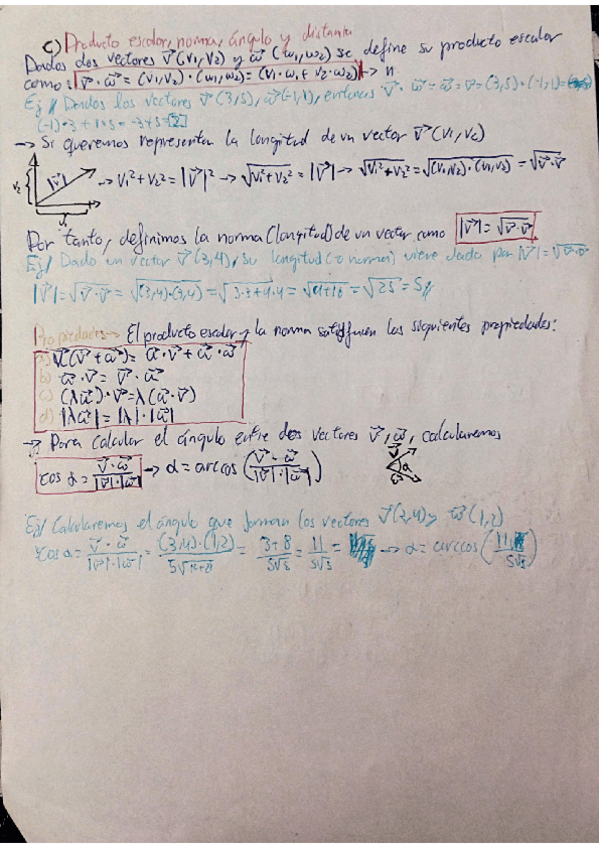 c) Producto escalar, norma, ángulo y distancia
Dados dos vectores v⃗(v₁,v₂) y w⃗(w₁,w₂) se define su producto escalar
como: v⃗·w⃗ = (v₁,v₂)·(w₁,w₂)=(v₁·w₁+v₂·w₂) → n
Ej// Dados los vectores v⃗(3,5), w⃗(-1,1), entonces v⃗·w⃗=w⃗·v⃗=(3,5)·(-1,1)=
(-1)·3+1·5=-3+5=2
→ Si queremos representar la longitud de un vector v⃗(v₁,v₂)
v₂ |v⃗| → v₁²+v₂²=|v⃗|² → √v₁²+v₂² = |v⃗| → √v₁²+v₂² = √(v₁,v₂)·(v₁,v₂) = √v⃗·v⃗
v₁
Por tanto, definimos la norma (longitud) de un vector como |v⃗|=√v⃗·v⃗
Ej/ Dado un vector v⃗(3,4), su longitud (o norma) viene dada por |v⃗|=√v⃗·v⃗
|v⃗|=√v⃗·v⃗=√(3,4)·(3,4)=√3·3+4·4=√9+16=√25=5//
Propiedades→ El producto escalar y la norma satisfacen las siguientes propiedades:
a) u⃗(v⃗+w⃗)=u⃗·v⃗+u⃗·w⃗
b) u⃗·v⃗=v⃗·u⃗
c) (λu⃗)·v⃗=λ(u⃗·v⃗)
d) |λu⃗|=|λ|·|u⃗|
→ Para calcular el ángulo entre dos vectores v⃗, w⃗, calcularemos
cos α = v⃗·w⃗/|v⃗|·|w⃗| → α = arccos (v⃗·w⃗/|v⃗|·|w⃗|) v⃗ α w⃗
Ej/ Calcularemos el ángulo que forman los vectores v⃗(3,4) y w⃗(1,2)
cos α = v⃗·w⃗/|v⃗|·|w⃗| = (3,4)·(1,2)/5√1²+2² = 3+8/5√5 = 11/5√5 = → α=arccos(11/5√5)